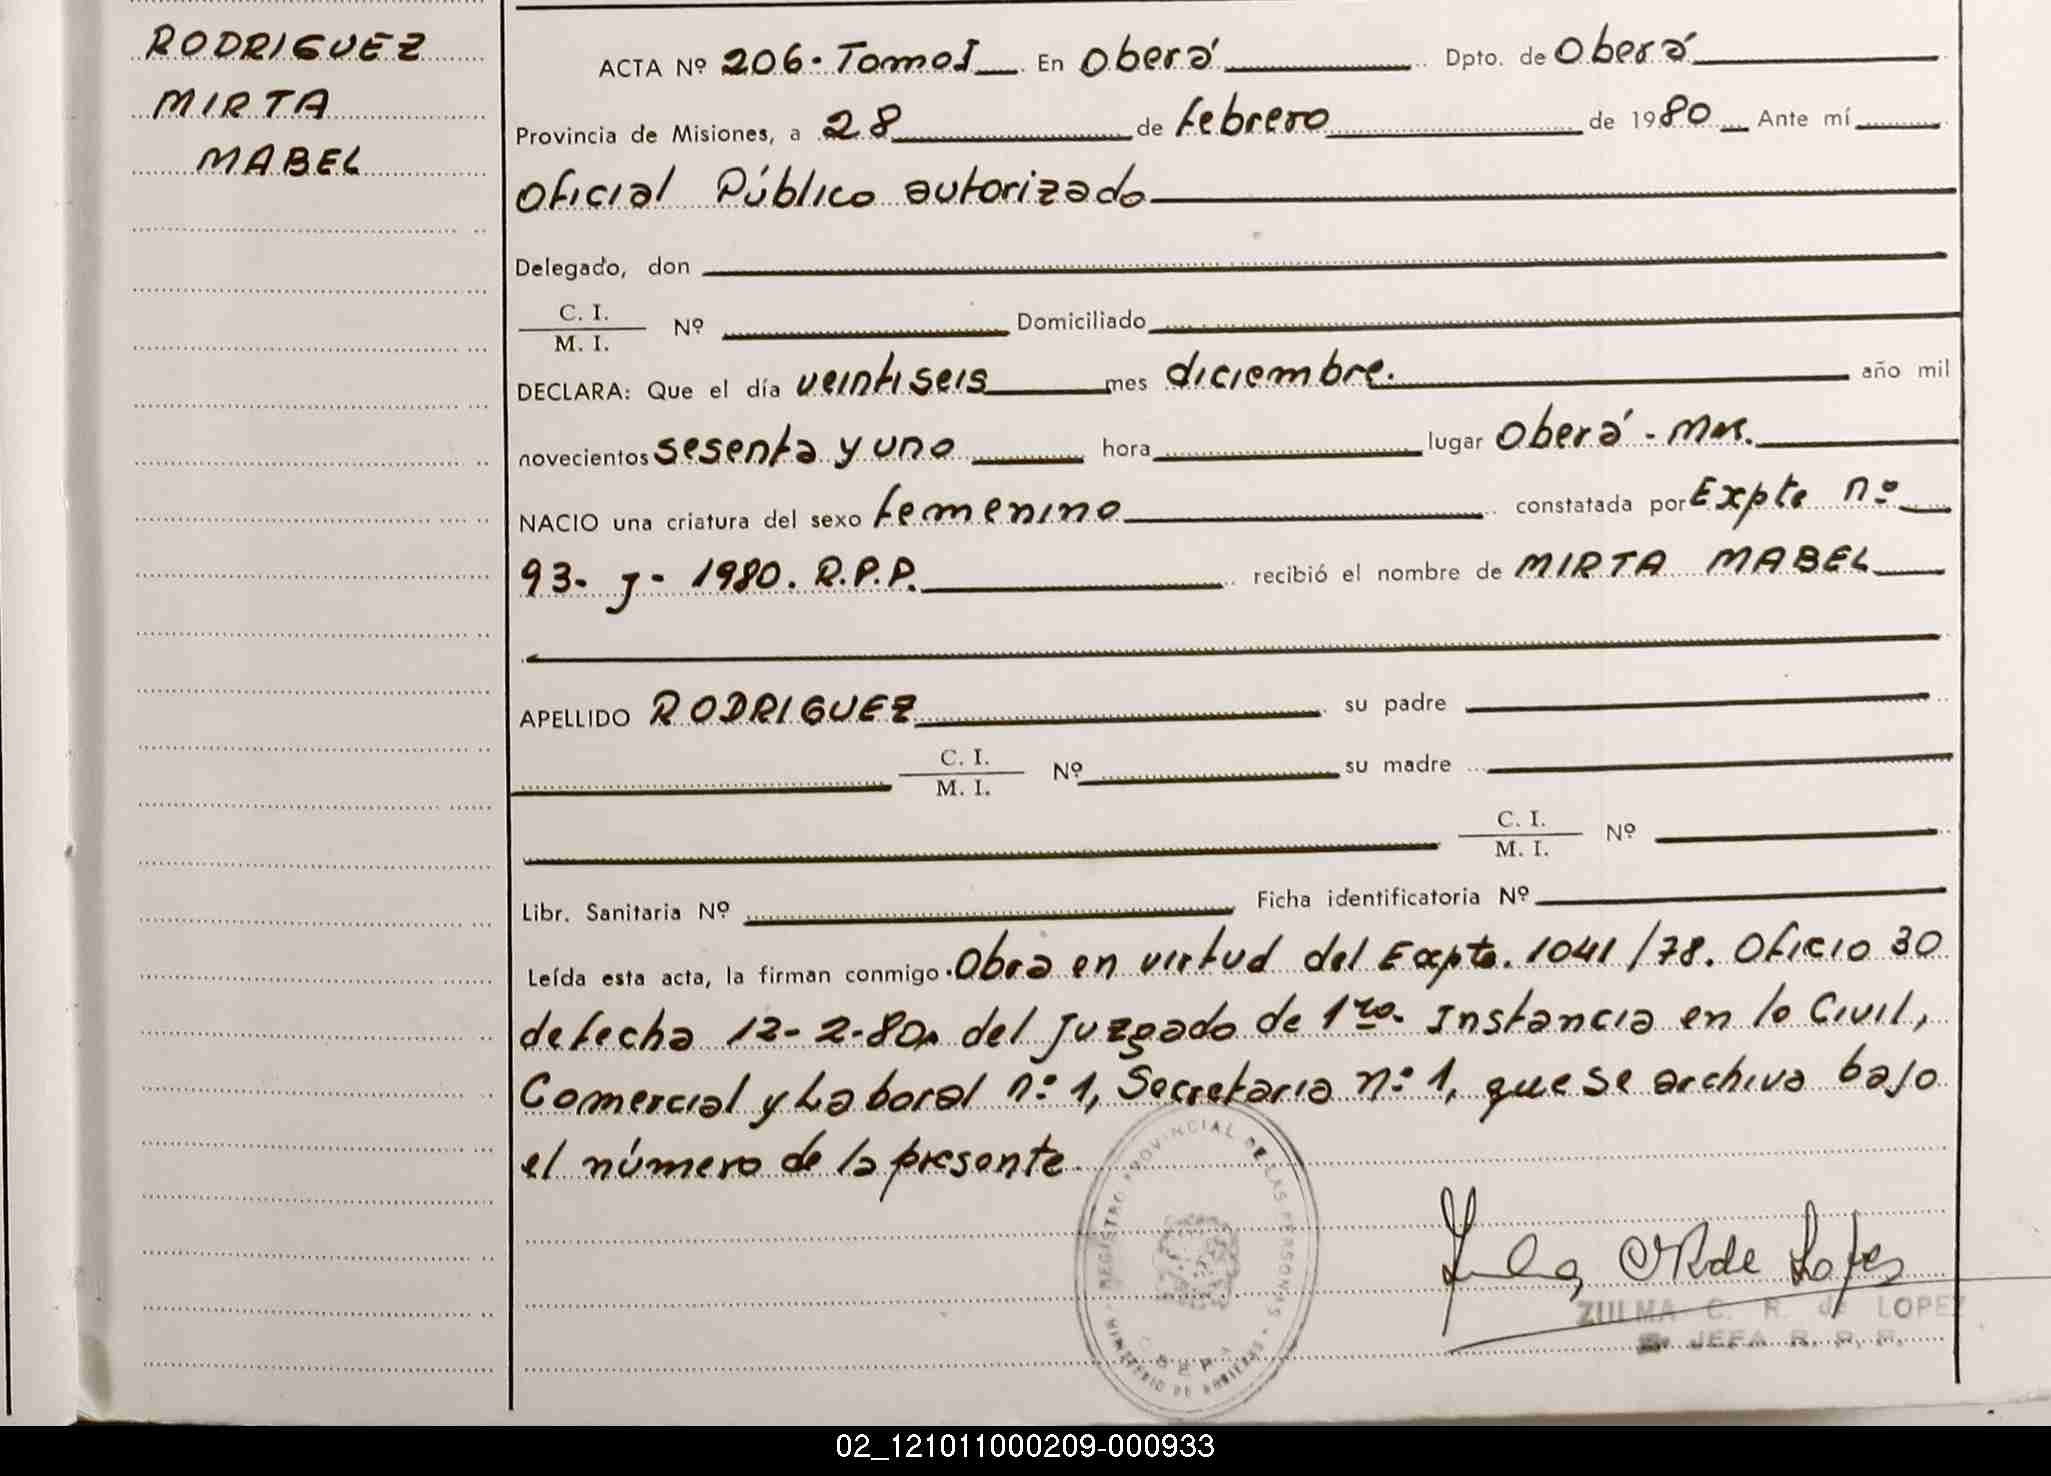 RODRIGUEZ
MIRTA
MABEL
ACTA Nº 206. Tomo I En Oberá Dpto. de Oberá
Provincia de Misiones, a 28 de febrero de 1980 Ante mí
Oficial Público autorizado
Delegado, don
C. I.
M. I.
Nº Domiciliado
DECLARA: Que el día veintiseis mes diciembre. año mil
novecientos sesenta y uno hora lugar Oberá - Mnes.
NACIO una criatura del sexo femenino constatada por Expte nº
93- J - 1980. R.P.P. recibió el nombre de MIRTA MABEL
APELLIDO RODRIGUEZ su padre
C. I.
M. I.
Nº su madre
C. I.
M. I.
Nº
Libr. Sanitaria Nº Ficha identificatoria Nº
Leída esta acta, la firman conmigo. Obra en virtud del Expte. 1041/78. Oficio 30
de fecha 12-2-80. del Juzgado de 1ra. Instancia en lo Civil,
Comercial y Laboral nº 1, Secretaria nº 1, que se archiva bajo
el número de la presente.
REGISTRO PROVINCIAL DE LAS PERSONAS - MINISTERIO DE GOBIERNO -
Zulma C R de Lopez
ZULMA C. R. de LOPEZ
JEFA R. P. P.
02_121011000209-000933